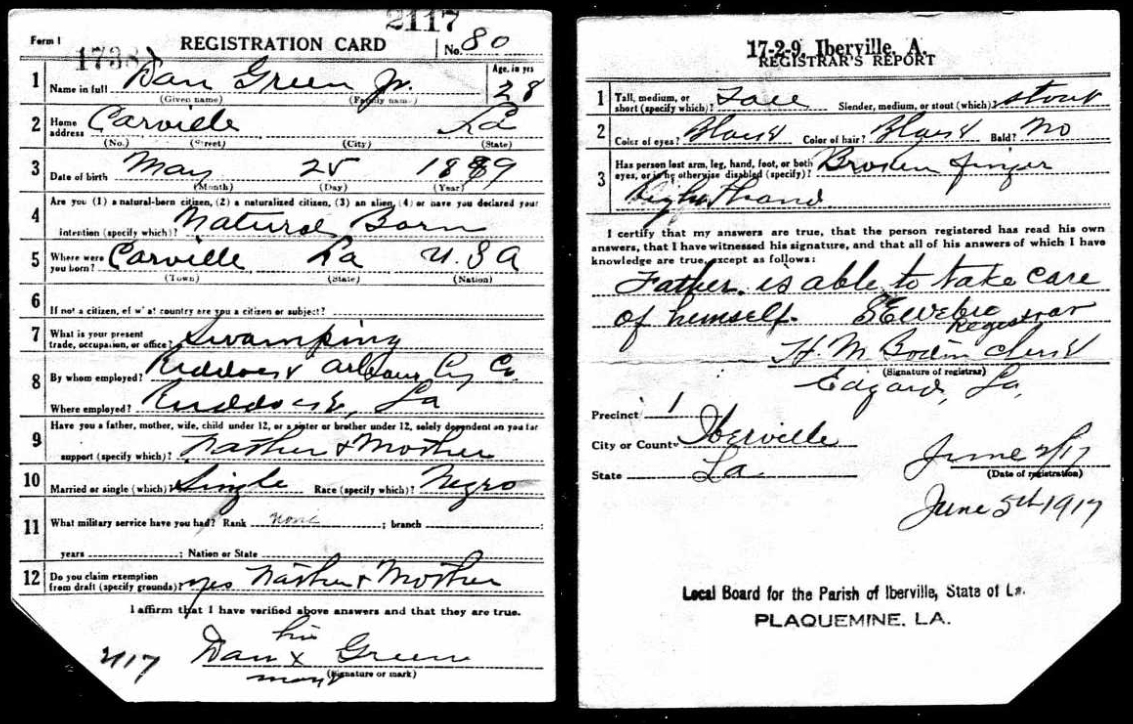 2117
Form 1 REGISTRATION CARD No. 80
1 Name in full Dan Green Jr. Age, in yrs 28
(Given name) (Family name)
2 Home address Carville La
(No.) (Street) (City) (State)
3 Date of birth May 25 1889
(Month) (Day) (Year)
4 Are you (1) a natural-born citizen, (2) a naturalized citizen, (3) an alien, (4) or have you declared your
intention (specify which)? Natural Born
5 Where were you born? Carville La U.S A
(Town) (State) (Nation)
6 If not a citizen, of what country are you a citizen or subject?
7 What is your present trade, occupation, or office? Swamping
8 By whom employed? Ruddock Cy Co
Where employed? Ruddock, La
9 Have you a father, mother, wife, child under 12, or a sister or brother under 12, solely dependent on you for
support (specify which)? Father & Mother
10 Married or single (which)? Single Race (specify which)? Negro
11 What military service have you had? Rank none ; branch ;
years ; Nation or State
12 Do you claim exemption from draft (specify grounds)? yes Father & Mother
I affirm that I have verified above answers and that they are true.
his
Dan x Green
mark (Signature or mark)
17-2-9. Iberville, A.
REGISTRAR'S REPORT
1 Tall, medium, or short (specify which)? Tall Slender, medium, or stout (which)? stout
2 Color of eyes? Black Color of hair? Black Bald? No
3 Has person lost arm, leg, hand, foot, or both eyes, or is he otherwise disabled (specify)? Broken finger
Right Hand
I certify that my answers are true, that the person registered has read his own
answers, that I have witnessed his signature, and that all of his answers of which I have
knowledge are true, except as follows:
Father is able to take care
of himself.
Registrar
H. M. Bodin clerk
(Signature of registrar)
Edgard, La,
Precinct 1
City or County Iberville
State La.
June 5/17
(Date of registration)
June 5th 1917
Local Board for the Parish of Iberville, State of La.
PLAQUEMINE, LA.